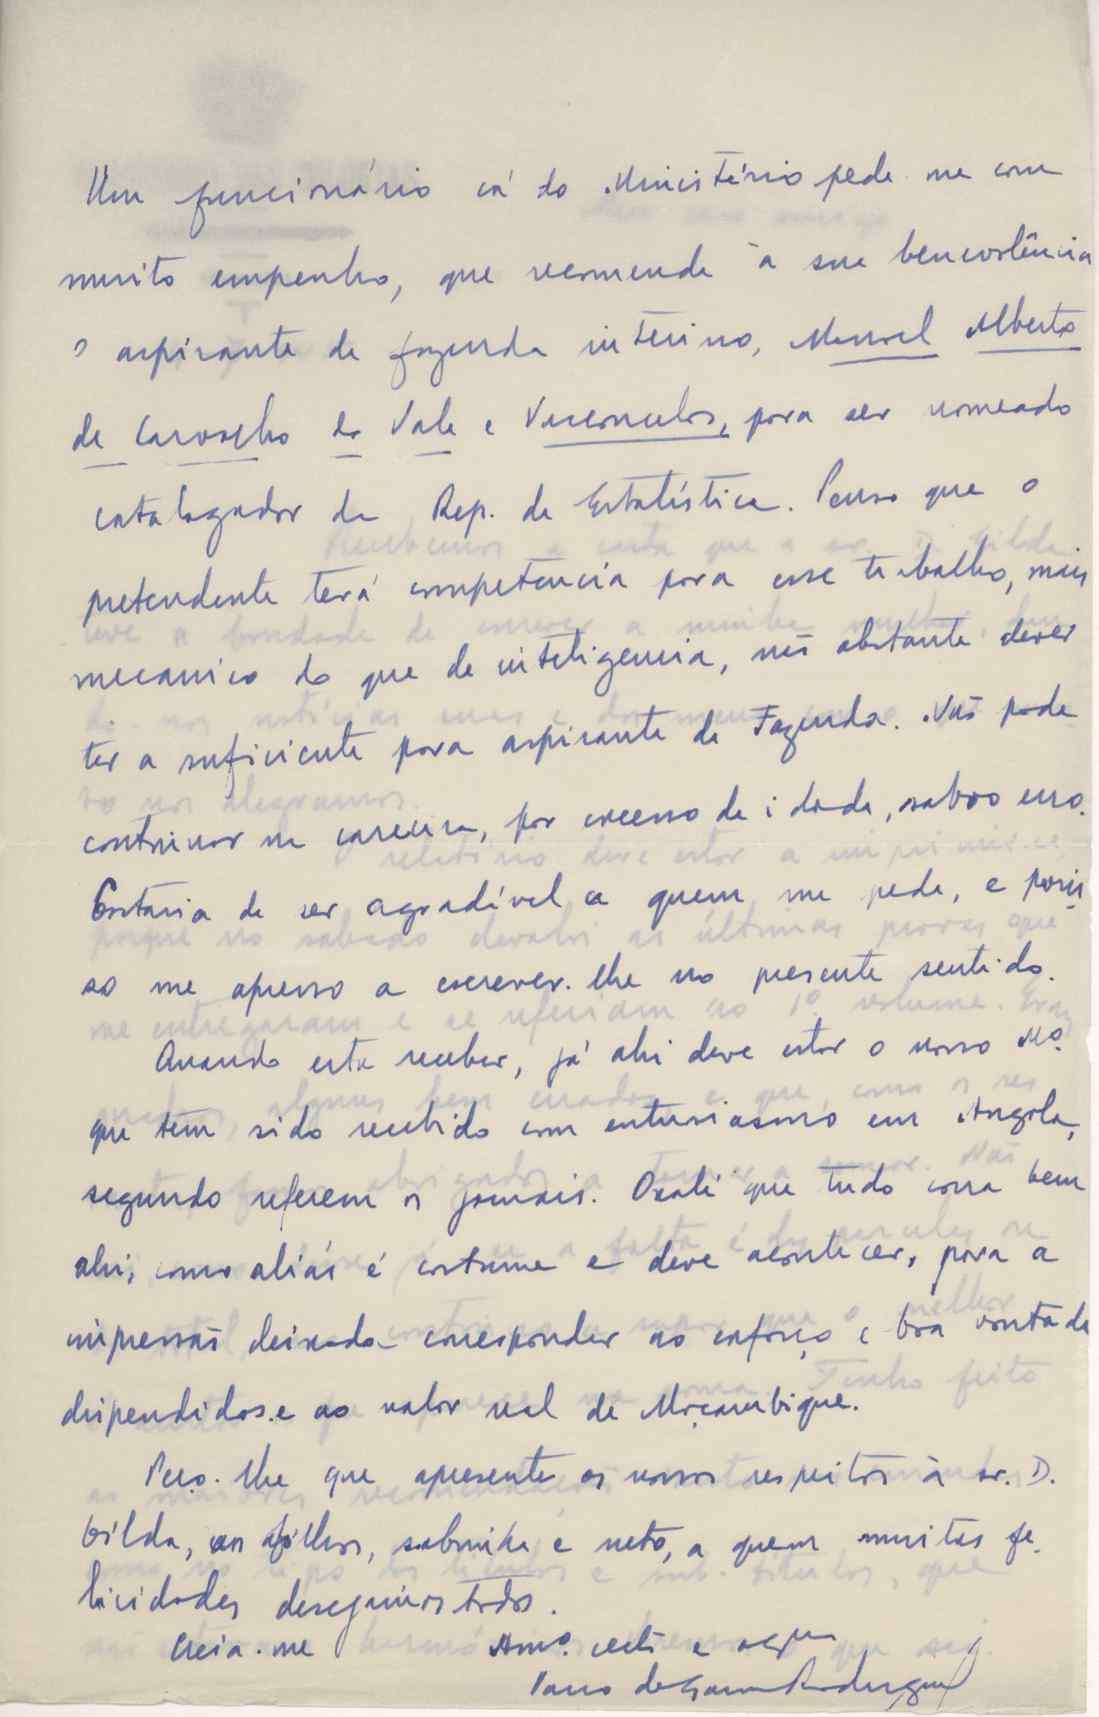 Um funcionário cá do Ministério pede-me com
muito empenho, que recomende à sua benevolência
o aspirante de fazenda interino, Manuel Alberto
de Carvalho do Vale e Vasconcelos, para ser nomeado
catalogador da Rep. de Estatística. Penso que o
pretendente terá competencia para esse trabalho, mais
mecanico do que de inteligencia, não obstante dever
ter a suficiente para aspirante de Fazenda. Não pode
continuar na carreira, por excesso de idade, salvo erro.
Gostaria de ser agradável a quem me pede, e poris
so me apresso a escrever-lhe no presente sentido.
Quando esta receber, já ahi deve estar o nosso Mo.
que tem sido recebido com entusiasmo em Angola,
segundo referem os jornais. Oxalá que tudo corra bem
ahi, como aliás é costume e deve acontecer, para a
impressão deixada corresponder ao esforço e boa vontade
dispendidos e ao valor real de Moçambique.
Peço-lhe que apresente os nossos respeitos à sr. D.
Gilda, aos filhos, sobrinha e neto, a quem muitas fe-
licidades desejamos todos.
Creia-me Amo. e
de Rodrigues